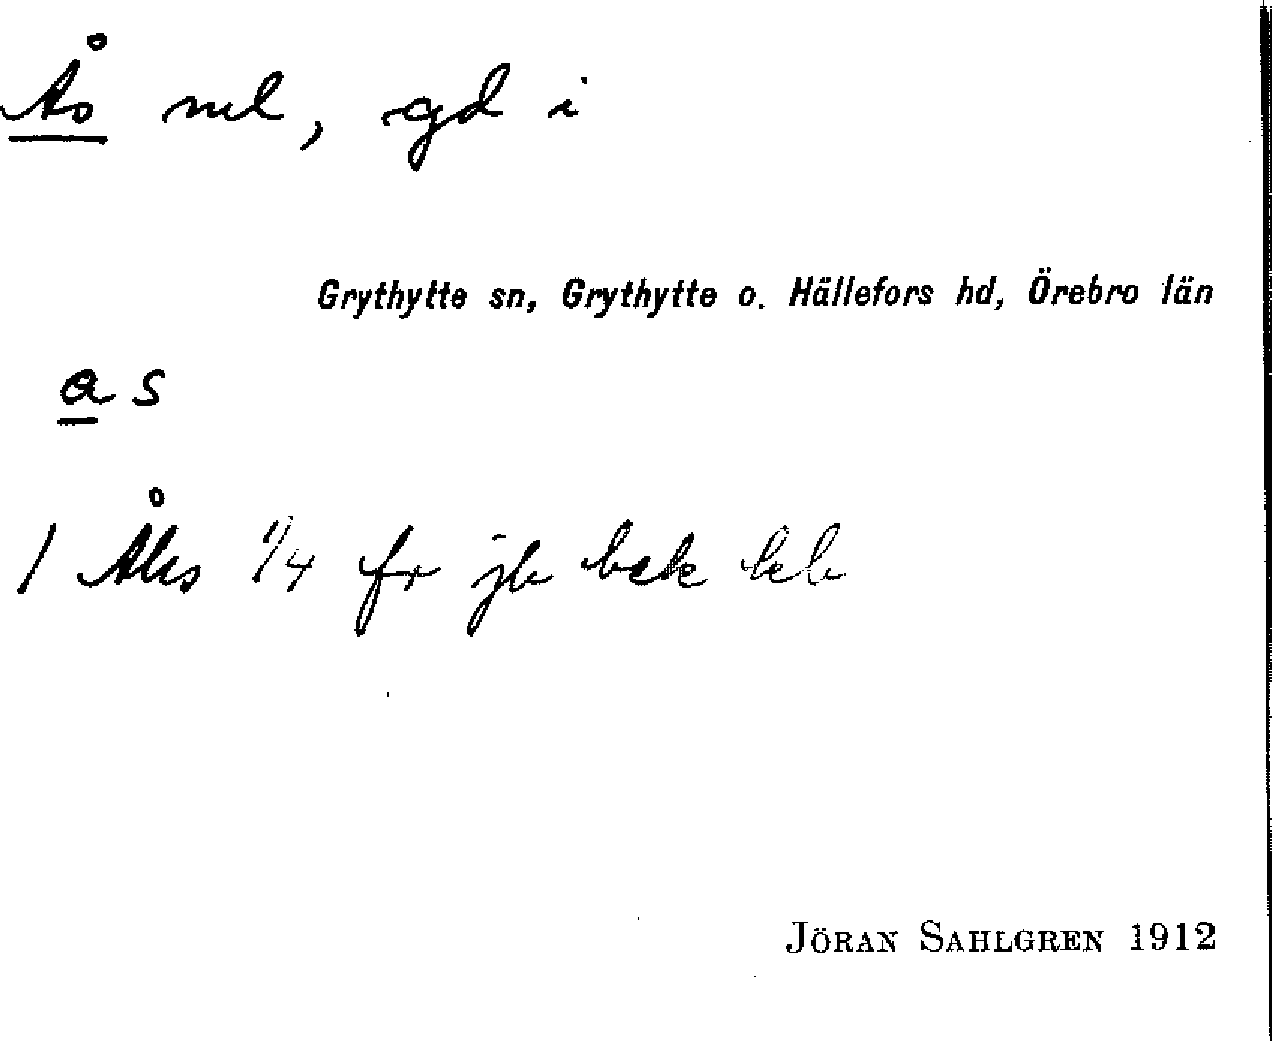 Ås nel, gd i
Grythytte sn, Grythytte o. Hällefors hd, Örebro län
a s
1 Åks 1/4 fr jb bek
JÖRAN SAHLGREN 1912